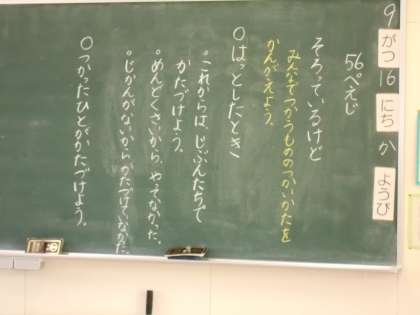 9がつ16にちかようび
56ぺえじ
そろっているけど
みんなでつかうもののつかいかたを
かんがえよう。
○はっとしたとき
・これからは、じぶんたちで
かたづけよう。
・めんどくさいから、やらなかった。
・じかんがないからかたづけてくなかった。
○つかったひとがかたづけよう。